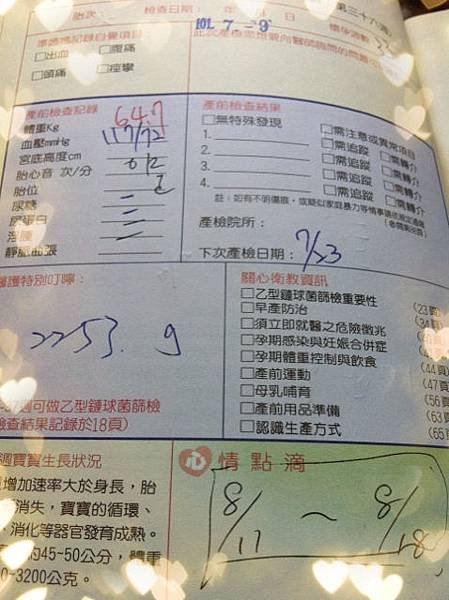 胎次： 檢查日期： 年 月 日 第三十六週
101. 7 - 9
準媽媽記錄自覺項目：
□出血 □腹痛
□頭痛 □痙攣
產前檢查記錄
體重Kg 64.7
血壓mmHg 117/72
宮底高度cm
胎心音 次/分
胎位
尿糖 －
尿蛋白 －
浮腫 －
靜脈曲張
產前檢查結果
□無特殊發現 □需注意或異常項目
1. □需追蹤 □需轉介
2. □需追蹤 □需轉介
3. □需追蹤 □需轉介
4. □需追蹤 □需轉介
產檢院所：
下次產檢日期： 7/23
護特別叮嚀：
2253. 9
37週可做乙型鏈球菌篩檢
檢查結果記錄於18頁)
關心衛教資訊
□乙型鏈球菌篩檢重要性 (23
□早產防治 (34
□須立即就醫之危險徵兆
□孕期感染與妊娠合併症
□孕期體重控制與飲食 (44頁
□產前運動 (47
□母乳哺育 (56
□產前用品準備 (63
□認識生產方式 (65
週寶寶生長狀況
增加速率大於身長，胎
消失，寶寶的循環、
、消化等器官發育成熟。
約45-50公分，體重
0-3200公克。
心情點滴
8/11 ~ 8/18